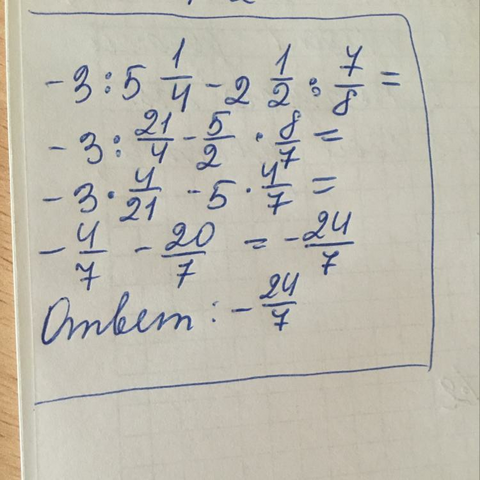 -3 : 5 1/4 - 2 1/2 : 7/8 =
-3 : 21/4 - 5/2 · 8/7 =
-3 · 4/21 - 5 · 4/7 =
-4/7 - 20/7 = -24/7
Ответ: -24/7